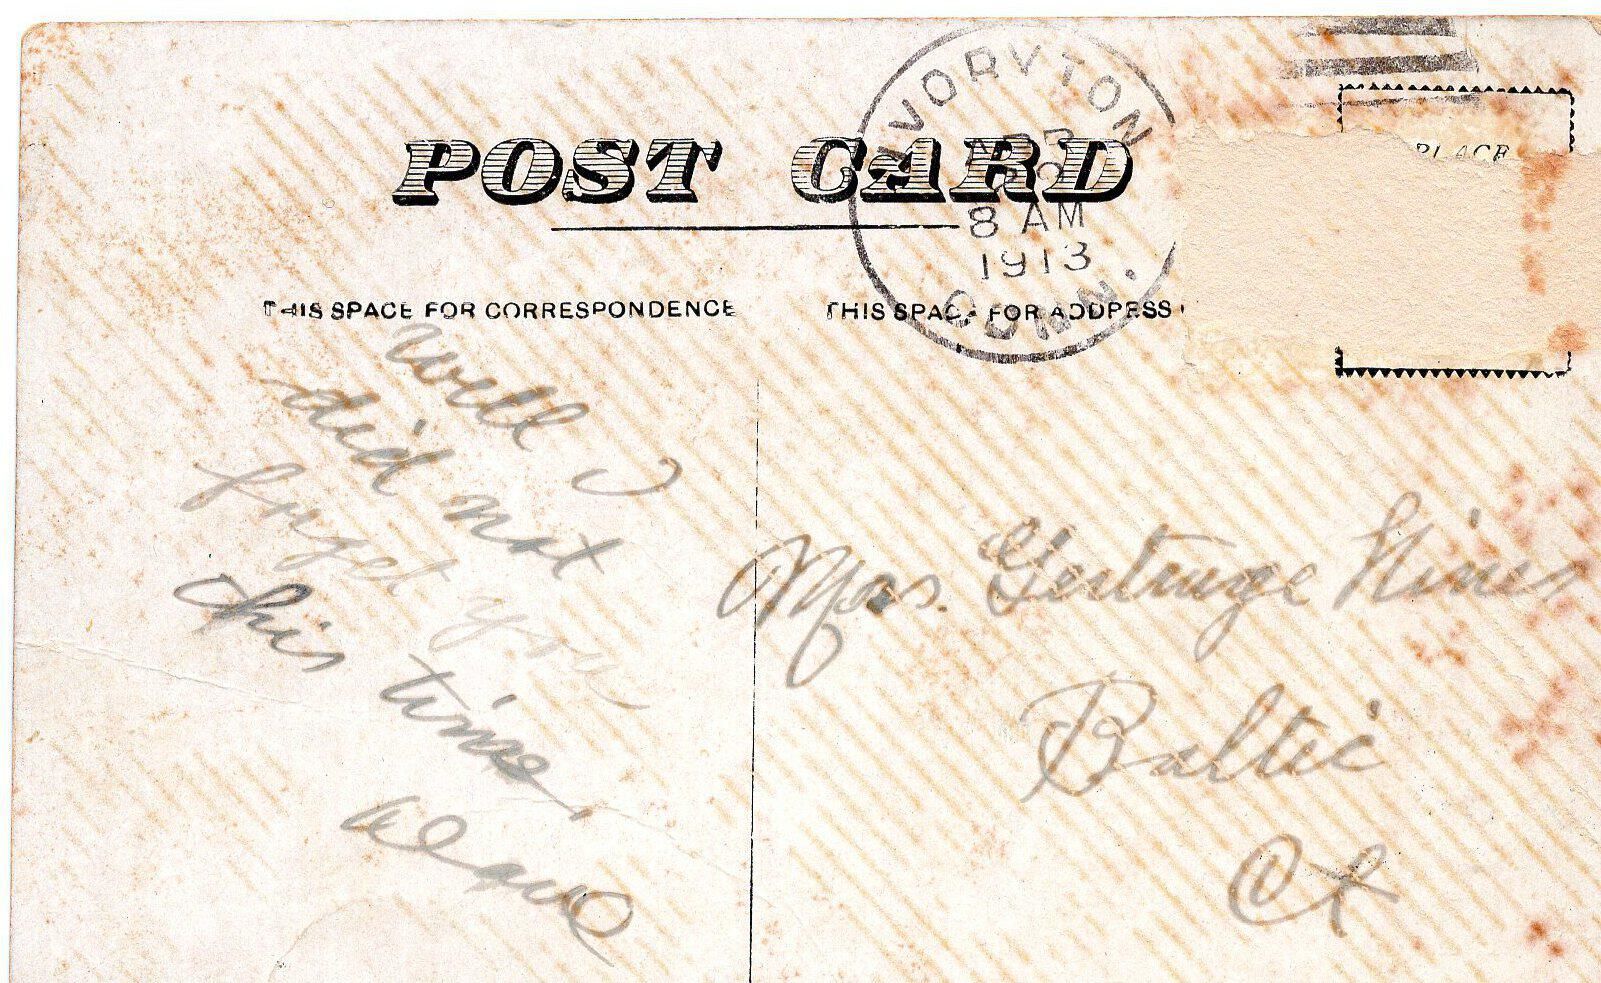 POST CARD
IVORYTON
APR
8 AM
1913
CONN.
PLACE
THIS SPACE FOR CORRESPONDENCE
THIS SPACE FOR ADDRESS
Well I
did not
forget you
this time.
Dave
Mrs.
Baltic
Ct